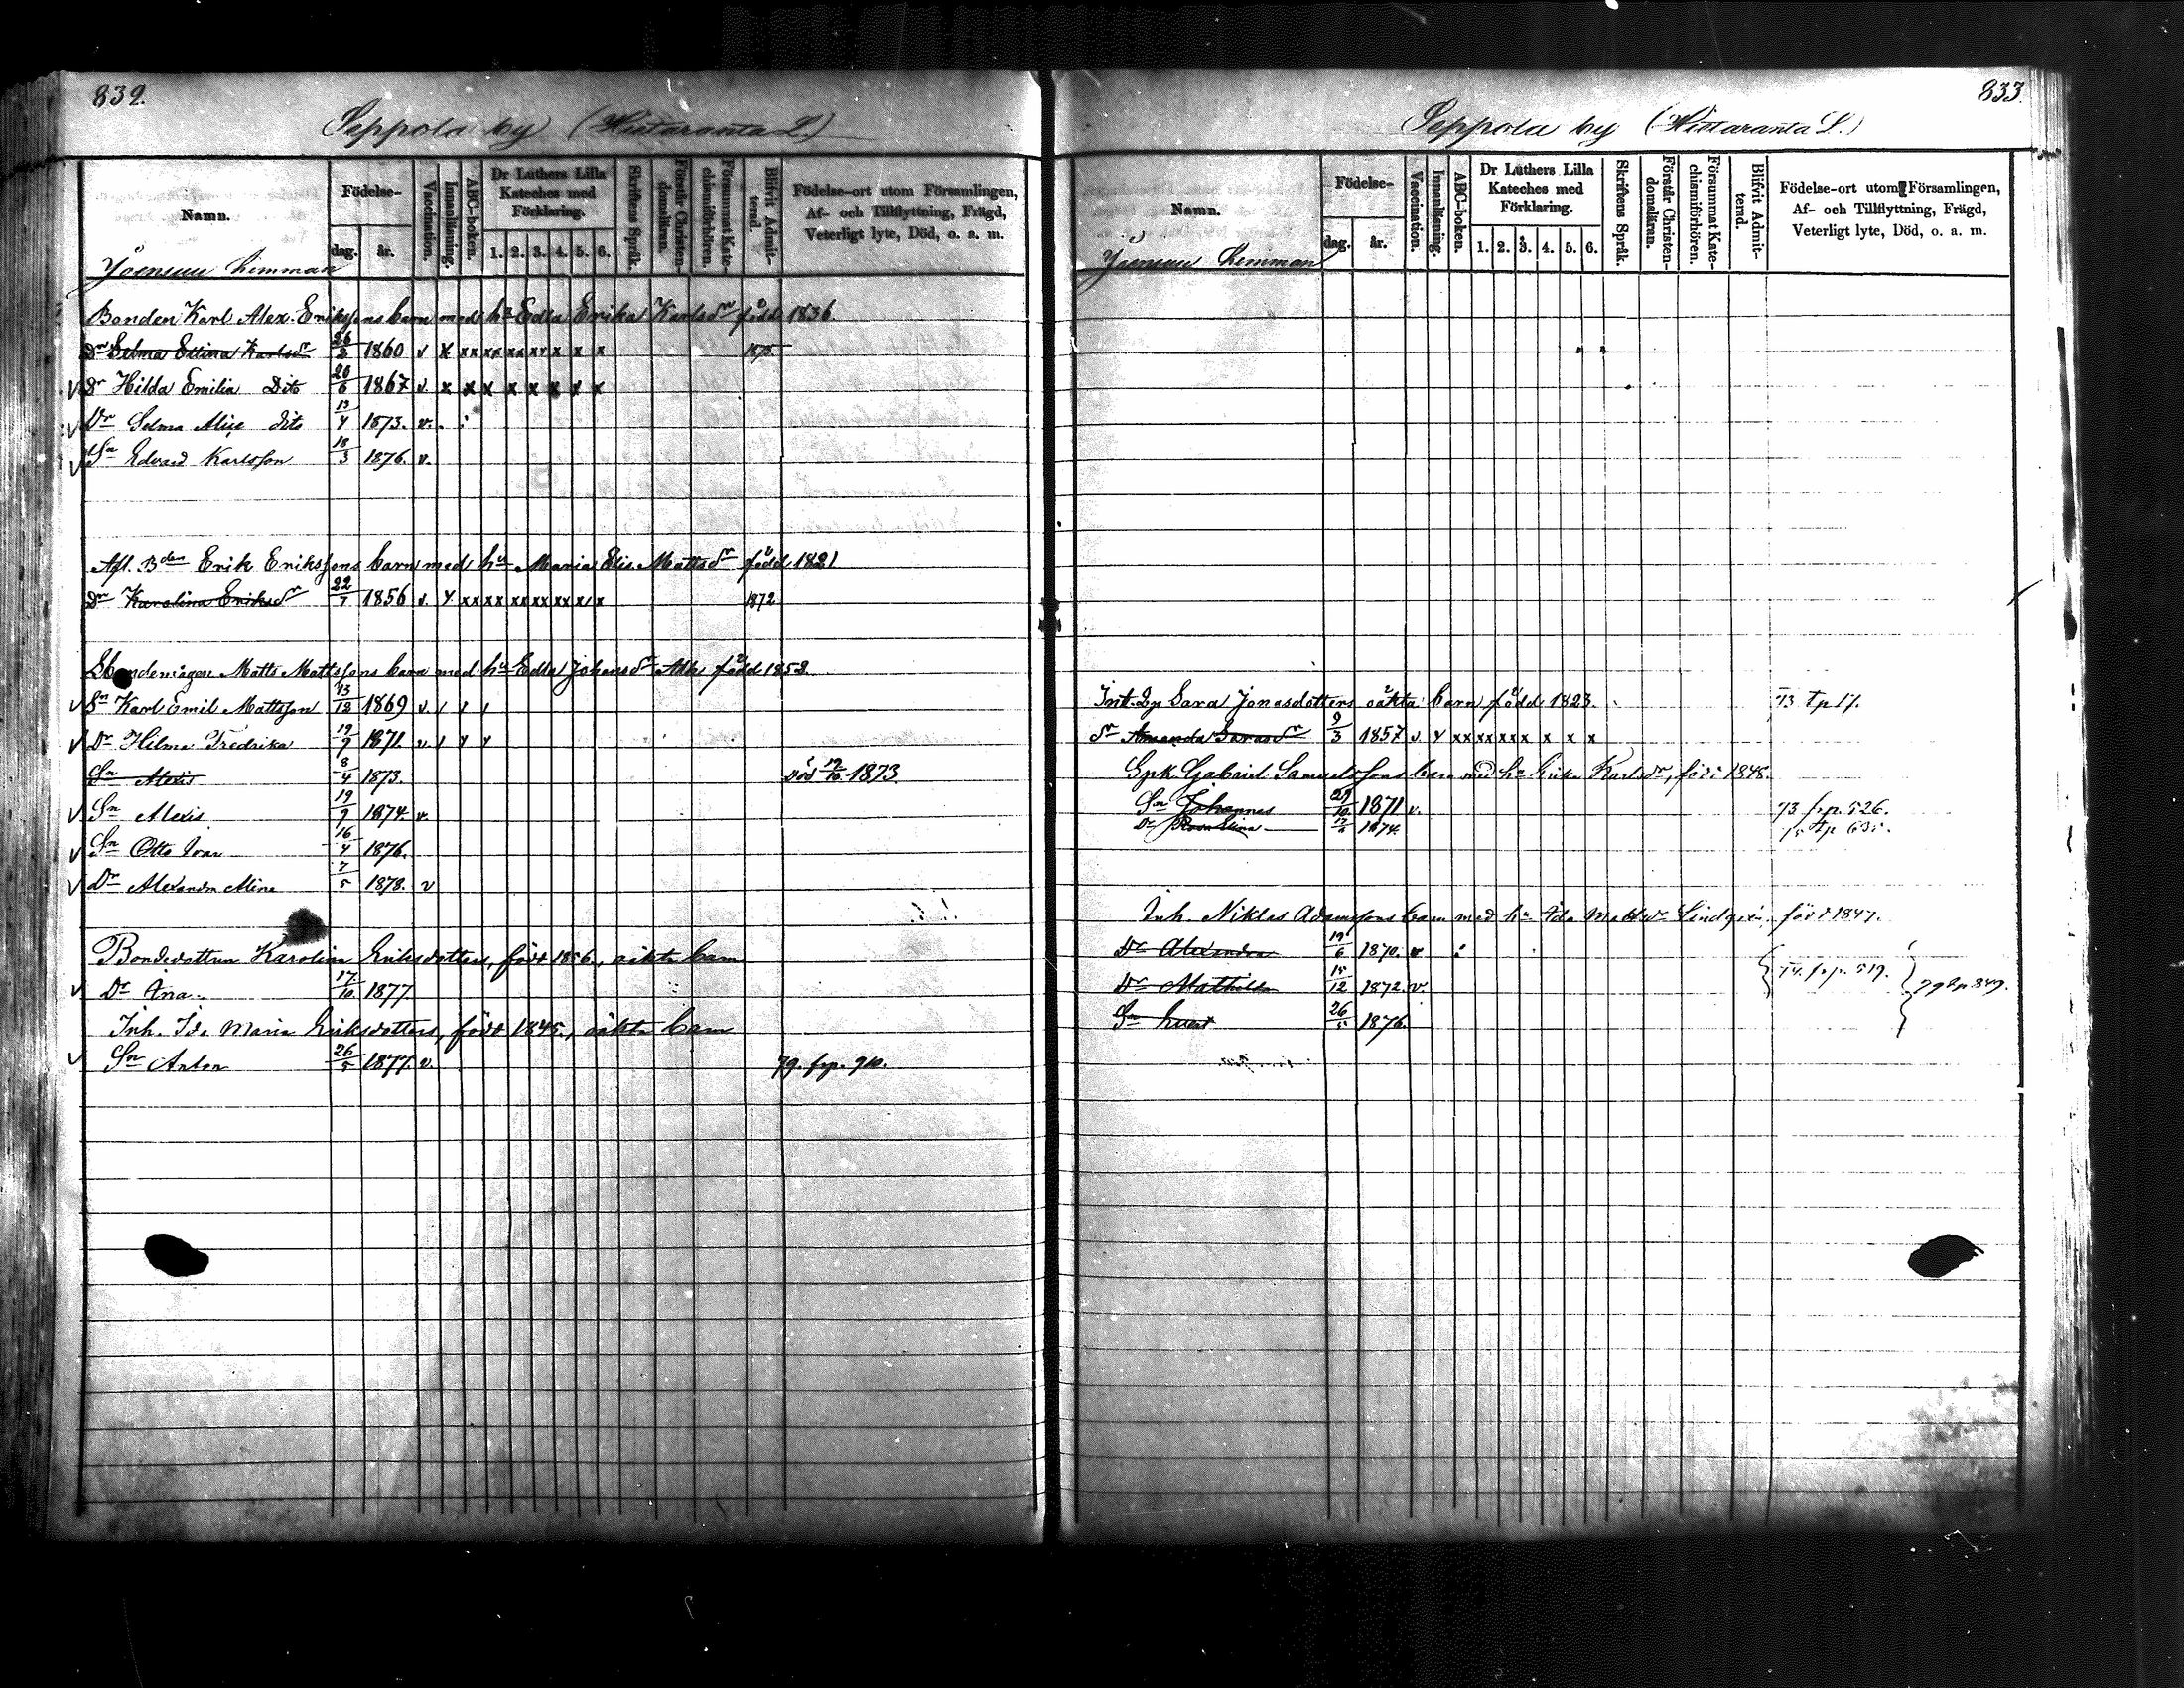 832.
Seppola by (Histaranta L.)
Namn.
Födelse-
dag.
år.
Vaccination.
Innanläsning.
ABC-boken.
Dr Luthers Lilla Kateches med Förklaring.
1. 2. 3. 4. 5. 6.
Skriftens Språk.
Förstår Christendomsläran.
Försummat Katechismiförhören.
Blifvit Admitterad.
Födelse-ort utom Församlingen, Af- och Tillflyttning, Frägd, Veterligt lyte, Död, o. a. m.
Joensuu Lemman
Bonden Karl Alex. Erikssons barn med hu Edla Erika Karlsdr född 1836
Dr Selma Karlsdr 26/2 1860 v x xx xx xx xx x x x 1875.
v Dr Hilda Emilia Dito 20/6 1867 v. x x x x x x x x
v Dr Selma Alise dito 13/4 1873. v.
v Sn Edvard Karlsson 18/3 1876. v.
Afl. Bden Erik Erikssons barn med hu Maria Elis. Mattsdr född 1821
Dr Karolina Eriksdr 22/7 1856 v. x xx xx xx xx xx x x 1872
Matts Mattssons barn med hu Edla Johansdr född 1852.
v Sn Karl Emil Mattsson 13/12 1869 v. / / /
v Dr Hilma Fredrika 19/9 1871. v. /
Sn Alexis 8/4 1873. Död 12/10 1873
v Sn Alexis 19/9 1874. v.
v Sn Otto Ivar 16/4 1876.
v Dr Alexandra Mina 7/5 1878. v
Bondedottren Karolina Eriksdotters, född 1856, oäkta barn
v Dr 17/10 1877.
Inh. Ida Maria Eriksdotters, född 1845., oäkta barn
v Sn Anton 26/5 1877. v. 79. frp. 910.
833.
Seppola by (Histaranta L.)
Namn.
Födelse-
dag.
år.
Vaccination.
Innanläsning.
ABC-boken.
Dr Luthers Lilla Kateches med Förklaring.
1. 2. 3. 4. 5. 6.
Skriftens Språk.
Förstår Christendomsläran.
Försummat Katechismiförhören.
Blifvit Admitterad.
Födelse-ort utom Församlingen, Af- och Tillflyttning, Frägd, Veterligt lyte, Död, o. a. m.
Joensuu Lemman
Sara Jonasdotters oäkta barn född 1823. 73 tp 17.
Dr Amanda Sarasdr 9/3 1857 v. x xx xx xx x x x x
Gabriel Samuelssons barn med hu Erika Karlsdr, född 1848.
Sn Johannes 29/10 1871 v. 73 frp. 526.
Dr Rosa 1874
Inh. Niklas Adamssons barn med hu Ida Lindqvist, född 1847.
Dr Alexandra 19/6 1870. v
Dr Mathilda 15/12 1872. v. 74. frp. 519. 79 tp 849.
Sn 26/5 1876.